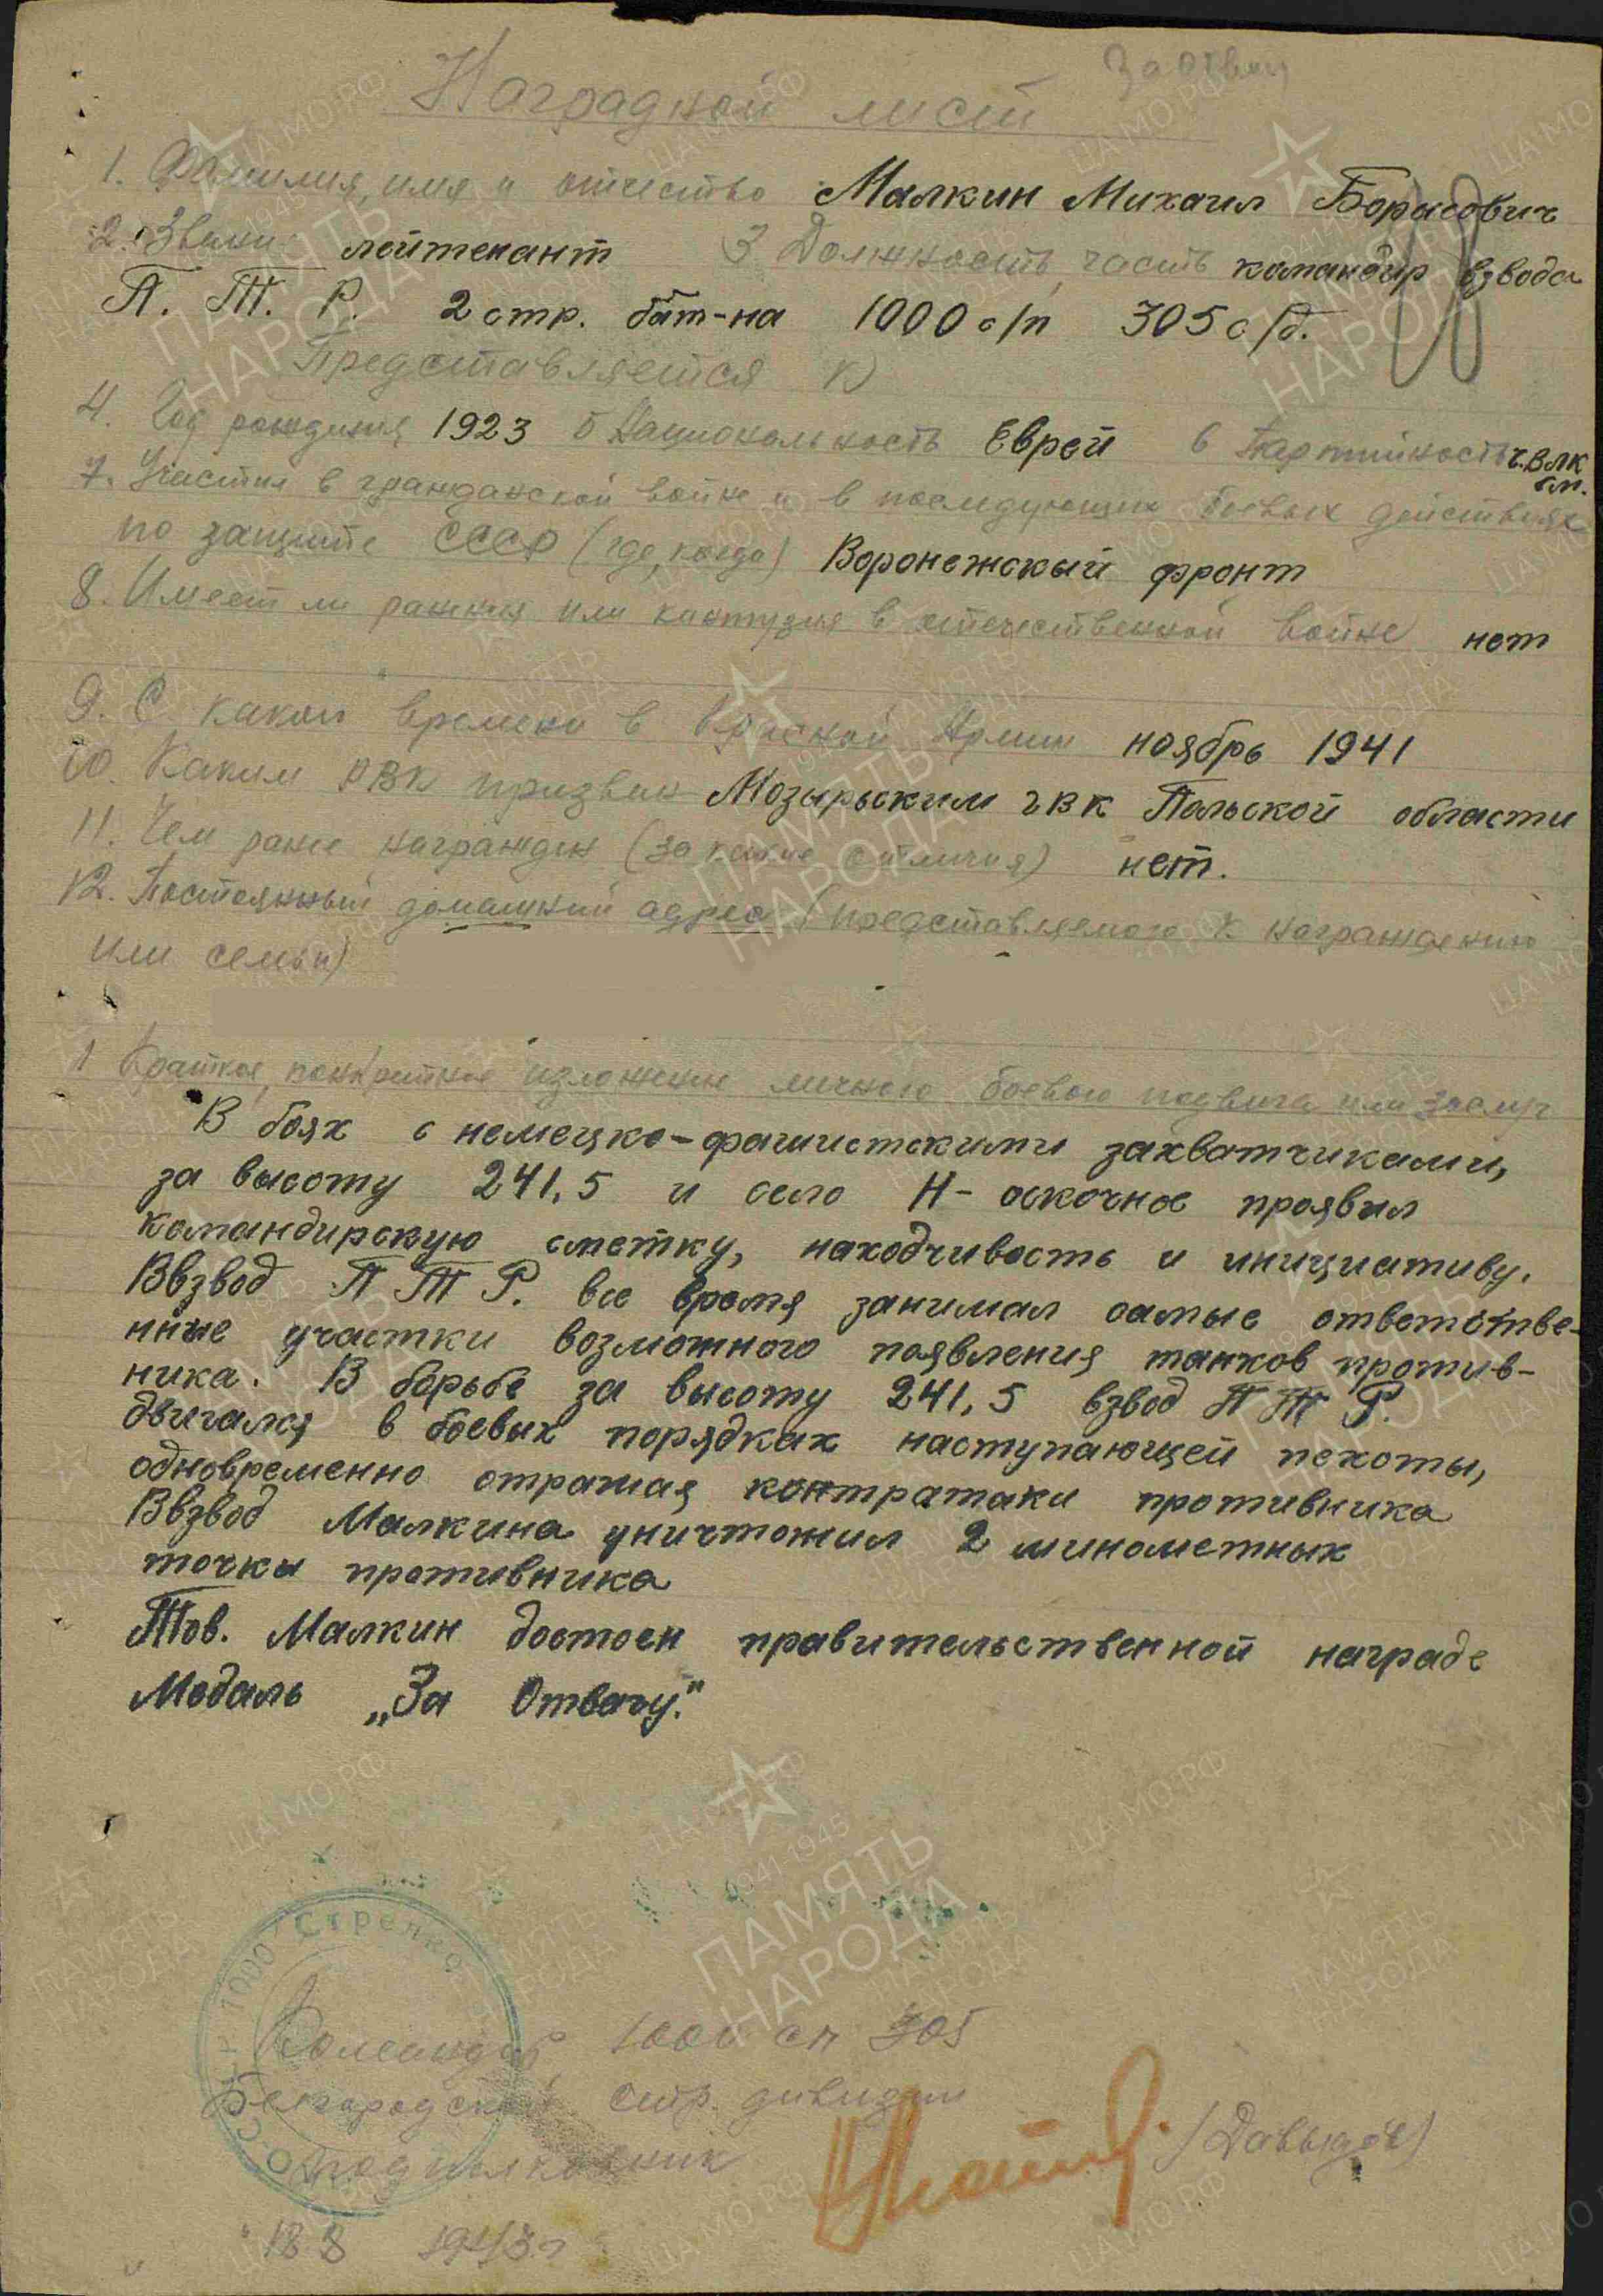 За отвагу
Наградной лист
1. Фамилия, имя и отчество Малкин Михаил Борисович
2. Звание лейтенант 3 Должность, часть командир взвода
П. Т. Р. 2 стр. бат-на 1000 с/п 305 с/д.
Представляется к
4. Год рождения 1923 5 Национальность Еврей 6 Партийность ч.ВЛК
см.
7. Участие в гражданской войне и в последующих боевых действиях
по защите СССР (где, когда) Воронежский фронт
8. Имеет ли ранения или контузия в отечественной войне нет
9. С какого времени в Красной Армии ноябрь 1941
10. Каким РВК призван Мозырьским гвк Польской области
11. Чем ранее награжден (за какие отличия) нет.
12. Постоянный домашний адрес (представляемого к награждению
или семьи)
1 Краткое, конкретное изложение личного боевого подвига или заслуг
В боях с немецко-фашистскими захватчиками,
за высоту 241,5 и село Н- оскочное проявил
командирскую сметку, находчивость и инициативу.
Ввзвод П Т Р. все время занимал самые ответстве-
нные участки возможного появления танков против-
ника. В борьбе за высоту 241,5 взвод П Т Р.
двигался в боевых порядках наступающей пехоты,
одновременно отражая контратаки противника
Ввзвод Малкина уничтожил 2 минометных
точки противника
Тов. Малкин достоен правительственной награде
Медаль „За Отвагу."
1000 Стрелко
Командир 1000 сп 305
Белгородской стр. дивизии
подполковник (Давыдов)
"18 8 1943 г
ПАМЯТЬ НАРОДА
1941-1945
ЦА МО РФ